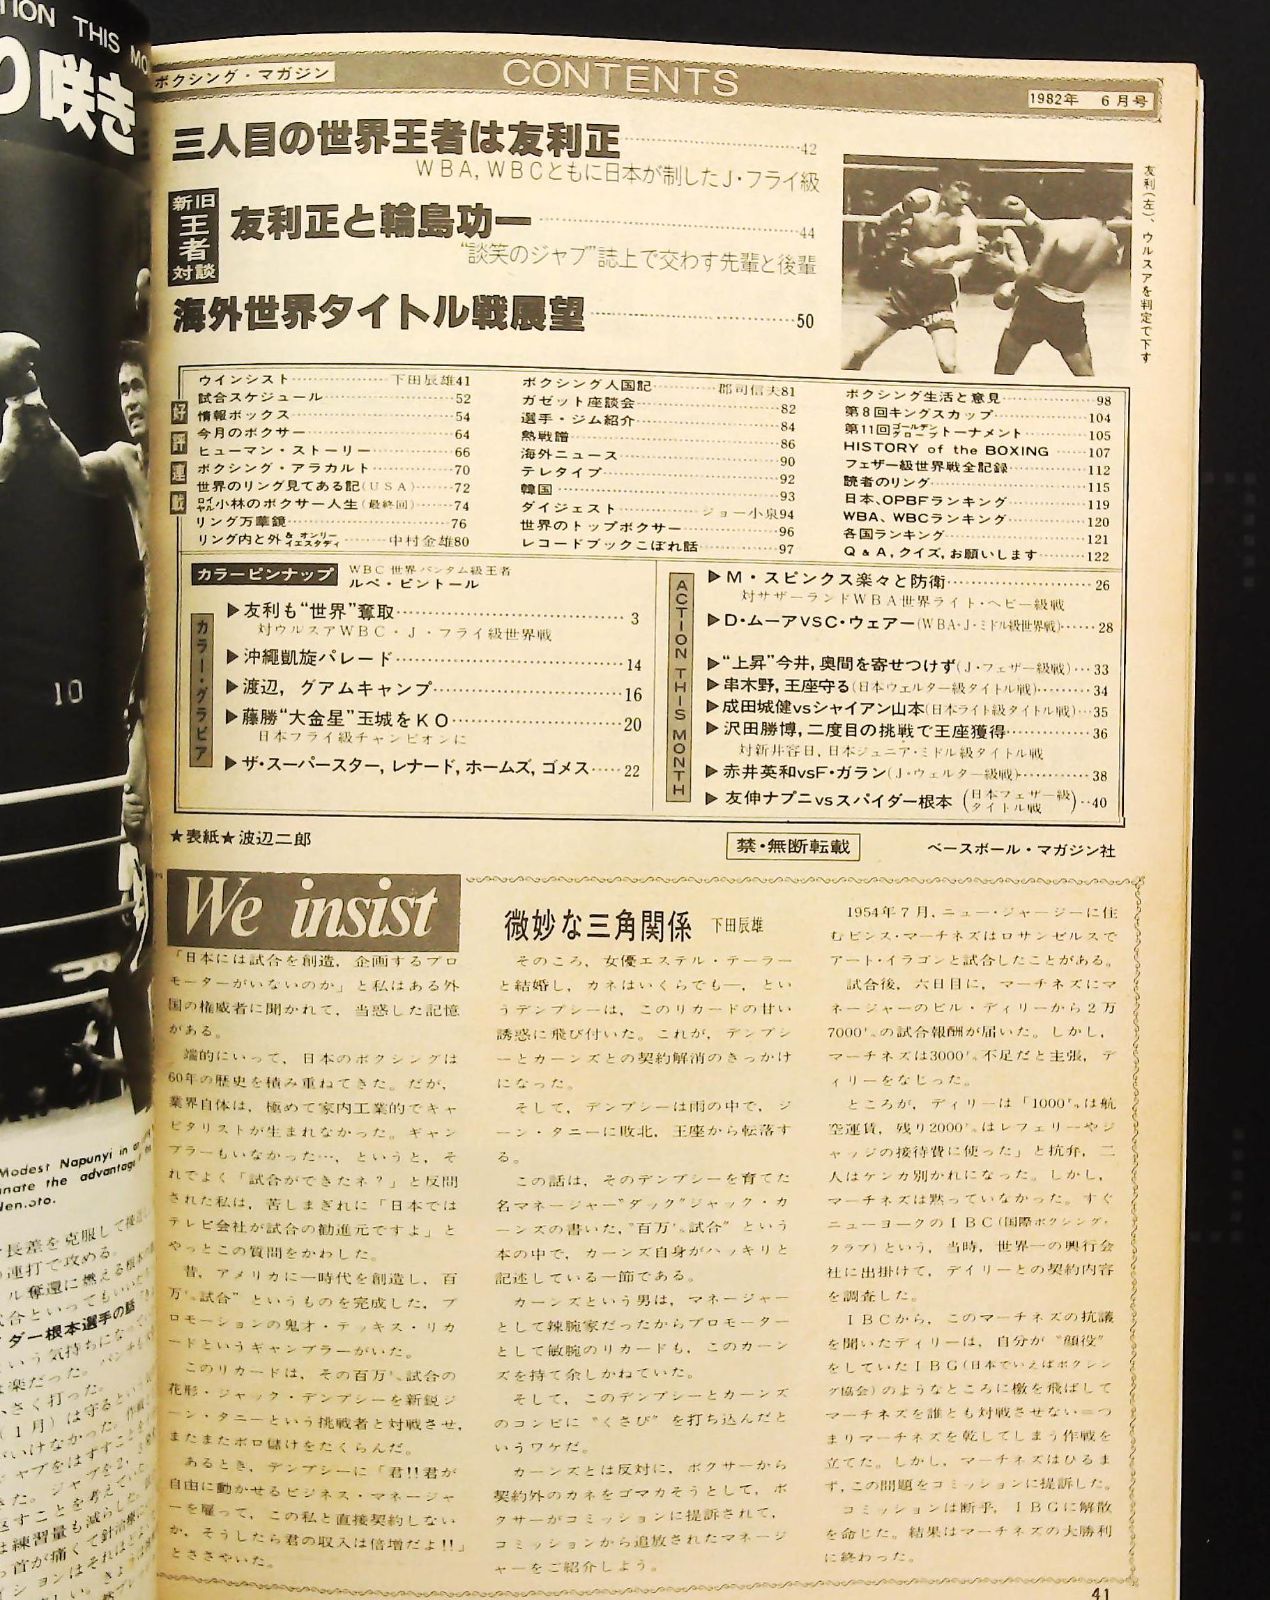 TION THIS MO
り咲き
10
Modest Napunyi in
nate the advantage
長差を克服して接近し
連打で攻める。
ル奪還に燃える根本の
ダー根本選手の話
いう気持ちになって
は楽だった。パンチも
さく打った。
ボクシング・マガジン
CONTENTS
1982年 6月号
三人目の世界王者は友利正 42
WBA,WBCともに日本が制したJ・フライ級
新旧王者対談
友利正と輪島功一 44
“談笑のジャブ”誌上で交わす先輩と後輩
海外世界タイトル戦展望 50
友利(左)、ウルスアを判定で下す
好評連載
ウインシスト 下田辰雄41
試合スケジュール 52
情報ボックス 54
今月のボクサー 64
ヒューマン・ストーリー 66
ボクシング・アラカルト 70
世界のリング見てある記(USA) 72
ロイヤル小林のボクサー人生(最終回) 74
リング万華鏡 76
リング内と外&オンリーイエスタディ 中村金雄80
ボクシング人国記 郡司信夫81
ガゼット座談会 82
選手・ジム紹介 84
熱戦譜 86
海外ニュース 90
テレタイプ 92
韓国 93
ダイジェスト ジョー小泉94
世界のトップボクサー 96
レコードブックこぼれ話 97
ボクシング生活と意見 98
第8回キングスカップ 104
第11回ゴールデングローブトーナメント 105
HISTORY of the BOXING 107
フェザー級世界戦全記録 112
読者のリング 115
日本、OPBFランキング 119
WBA、WBCランキング 120
各国ランキング 121
Q&A,クイズ,お願いします 122
カラーピンナップ
WBC世界バンタム級王者
ルペ・ピントール
カラー・グラビア
▶友利も“世界”奪取 3
対ウルスアWBC・J・フライ級世界戦
▶沖縄凱旋パレード 14
▶渡辺，グアムキャンプ 16
▶藤勝“大金星”王城をKO 20
日本フライ級チャンピオンに
▶ザ・スーパースター，レナード，ホームズ，ゴメス 22
ACTION THIS MONTH
▶M・スピンクス楽々と防衛 26
対サザーランドWBA世界ライト・ヘビー級戦
▶D・ムーアVSC・ウェアー(WBA・J・ミドル級世界戦) 28
▶“上昇”今井，奥間を寄せつけず(J・フェザー級戦) 33
▶串木野，王座守る(日本ウェルター級タイトル戦) 34
▶成田城健vsシャイアン山本(日本ライト級タイトル戦) 35
▶沢田勝博，二度目の挑戦で王座獲得 36
対新井容日，日本ジュニア・ミドル級タイトル戦
▶赤井英和vsF・ガラン(J・ウェルター級戦) 38
▶友伸ナプニvsスパイダー根本(日本フェザー級タイトル戦) 40
★表紙★波辺二郎
禁・無断転載
ベースボール・マガジン社
We insist
「日本には試合を創造，企画するプロ
モーターがいないのか」と私はある外
国の権威者に聞かれて，当惑した記憶
がある。
端的にいって，日本のボクシングは
60年の歴史を積み重ねてきた。だが，
業界自体は，極めて家内工業的でキャ
ピタリストが生まれなかった。ギャン
ブラーもいなかった…，というと，そ
れでよく「試合ができたネ？」と反問
された私は，苦しまぎれに「日本では
テレビ会社が試合の勧進元ですよ」と
やっとこの質問をかわした。
昔，アメリカに一時代を創造し，百
万㌦試合”というものを完成した，プ
ロモーションの鬼才・テッキス・リカ
ードというギャンブラーがいた。
このリカードは，その百万㌦試合の
花形・ジャック・デンプシーを新鋭ジ
ーン・タニーという挑戦者と対戦させ，
またまたボロ儲けをたくらんだ。
あるとき，デンプシーに「君!!君が
自由に動かせるビジネス・マネージャ
ーを雇って，この私と直接契約しない
か，そうしたら君の収入は倍増だよ!!」
とささやいた。
微妙な三角関係 下田辰雄
そのころ，女優エステル・テーラー
と結婚し，カネはいくらでも―，とい
うデンプシーは，このリカードの甘い
誘惑に飛び付いた。これが，デンプシ
ーとカーンズとの契約解消のきっかけ
になった。
そして，デンプシーは雨の中で，ジ
ーン・タニーに敗北，王座から転落す
る。
この話は，そのデンプシーを育てた
名マネージャー“ダック”ジャック・カ
ーンズの書いた，“百万㌦試合”という
本の中で，カーンズ自身がハッキリと
記述している一節である。
カーンズという男は，マネージャー
として辣腕家だったからプロモーター
として敏腕のリカードも，このカーン
ズを持て余しかねていた。
そして，このデンプシーとカーンズ
のコンビに“くさび”を打ち込んだと
いうワケだ。
カーンズとは反対に，ボクサーから
契約外のカネをゴマカそうとして，ボ
クサーがコミッションに提訴されて，
コミッションから追放されたマネージ
ャーをご紹介しよう。
1954年7月，ニュー・ジャージーに住
むビンス・マーチネズはロサンゼルスで
アート・イラゴンと試合したことがある。
試合後，六日目に，マーチネズにマ
ネージャーのビル・ディリーから2万
7000㌦の試合報酬が届いた。しかし，
マーチネズは3000㌦不足だと主張，デ
ィリーをなじった。
ところが，ディリーは「1000㌦は航
空運賃，残り2000㌦はレフェリーやジ
ャッジの接待費に使った」と抗弁，二
人はケンカ別かれになった。しかし，
マーチネズは黙っていなかった。すぐ
ニューヨークのIBC(国際ボクシング・
クラブ)という，当時，世界一の興行会
社に出掛けて，デイリーとの契約内容
を調査した。
IBCから，このマーチネズの抗議
を聞いたディリーは，自分が“顔役”
をしていたIBG(日本でいえばボクシン
グ協会)のようなところに檄を飛ばして
マーチネズを誰とも対戦させない＝つ
まりマーチネズを乾してしまう作戦を
立てた。しかし，マーチネズはひるま
ず，この問題をコミッションに提訴した。
コミッションは断乎，IBGに解散
を命じた。結果はマーチネズの大勝利
に終わった。
41